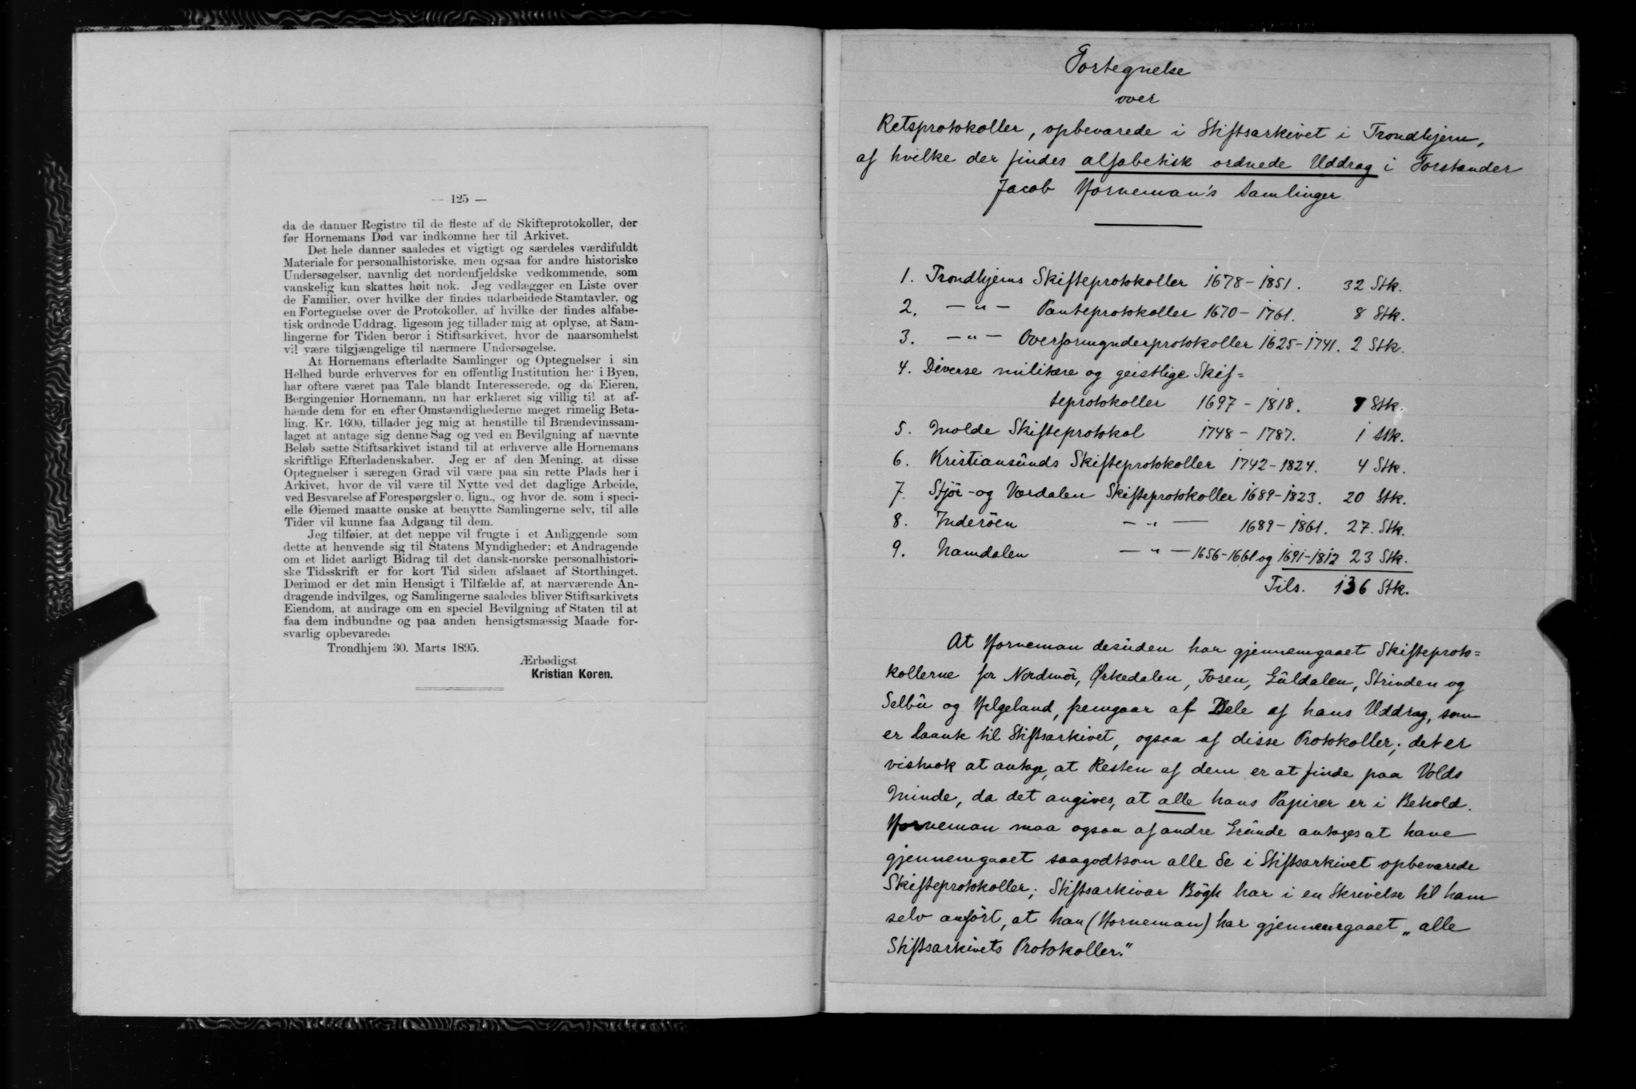 — 125 —
da de danner Registre til de fleste af de Skifteprotokoller, der
før Hornemans Død var indkomne her til Arkivet.
Det hele danner saaledes et vigtigt og særdeles værdifuldt
Materiale for personalhistoriske, men ogsaa for andre historiske
Undersøgelser, navnlig det nordenfjeldske vedkommende, som
vanskelig kan skattes høit nok. Jeg vedlægger en Liste over
de Familier, over hvilke der findes udarbeidede Stamtavler, og
en Fortegnelse over de Protokoller, af hvilke der findes alfabe-
tisk ordnede Uddrag, ligesom jeg tillader mig at oplyse, at Sam-
lingerne for Tiden beror i Stiftsarkivet, hvor de naarsomhelst
vil være tilgjængelige til nærmere Undersøgelse.
At Hornemans efterladte Samlinger og Optegnelser i sin
Helhed burde erhverves for en offentlig Institution her i Byen,
har oftere været paa Tale blandt Interesserede, og da Eieren,
Bergingeniør Hornemann, nu har erklæret sig villig til at af-
hænde dem for en efter Omstændighederne meget rimelig Beta-
ling, Kr. 1600, tillader jeg mig at henstille til Brændevinssam-
laget at antage sig denne Sag og ved en Bevilgning af nævnte
Beløb sætte Stiftsarkivet istand til at erhverve alle Hornemans
skriftlige Efterladenskaber. Jeg er af den Mening, at disse
Optegnelser i særegen Grad vil være paa sin rette Plads her i
Arkivet, hvor de vil være til Nytte ved det daglige Arbeide,
ved Besvarelse af Forespørgsler o. lign., og hvor de, som i speci-
elle Øiemed maatte ønske at benytte Samlingerne selv, til alle
Tider vil kunne faa Adgang til dem.
Jeg tilføier, at det neppe vil frugte i et Anliggende som
dette at henvende sig til Statens Myndigheder; et Andragende
om et lidet aarligt Bidrag til det dansk-norske personalhistori-
ske Tidsskrift er for kort Tid siden afslaaet af Storthinget.
Derimod er det min Hensigt i Tilfælde af, at nærværende An-
dragende indvilges, og Samlingerne saaledes bliver Stiftsarkivets
Eiendom, at andrage om en speciel Bevilgning af Staten til at
faa dem indbundne og paa anden hensigtsmæssig Maade for-
svarlig opbevarede.
Trondhjem 30. Marts 1895.
Ærbødigst
Kristian Koren.
Fortegnelse
over
Retsprotokoller, opbevarede i Stiftsarkivet i Trondhjem,
af hvilke der findes alfabetisk ordnede Uddrag i Forstander
Jacob Horneman's Samlinger
1. Trondhjems Skifteprotokoller 1678-1851. 32 Stk.
2. — " — Panteprotokoller 1670-1761. 8 Stk.
3. — " — Overformynderprotokoller 1625-1741. 2 Stk.
4. Diverse militære og geistlige Skif=
teprotokoller 1697-1818. Stk.
5. Molde Skifteprotokol 1748-1787. 1 Stk.
6. Kristiansunds Skifteprotokoller 1742-1824. 4 Stk.
7. Stjør- og Værdalen Skifteprotokoller 1689-1823. 20 Stk.
8. Inderöen — " — 1689-1861. 27 Stk.
9. Namdalen — " — 1656-1661 og 1691-1812 23 Stk.
Tils. 136 Stk.
At Horneman desuden har gjennemgaaet Skifteproto=
kollerne for Nordmör, Ørkedalen, Fosen, Guldalen, Strinden og
Selbu og Helgeland, fremgaar af Dele af hans Uddrag, som
er laante til Stiftsarkivet, ogsaa af disse Protokoller; det er
vistnok at antage, at Resten af dem er at finde paa Volds
Minde, da det angives, at alle hans Papirer er i Behold.
Horneman maa ogsaa af andre Grunde antages at have
gjennemgaaet saagodtsom alle de i Stiftsarkivet opbevarede
Skifteprotokoller; Stiftsarkivar Bögh har i en Skrivelse til ham
selv anfört, at han (Horneman) har gjennemgaaet „alle
Stiftsarkivets Protokoller."